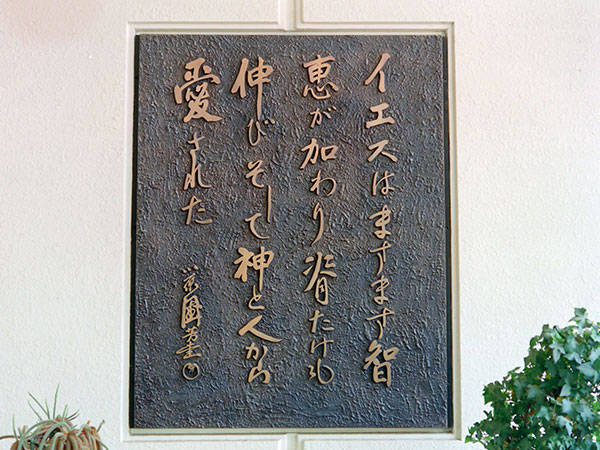 イエスはますます智
恵が加わり脊たけも
伸びそして神と人から
愛された